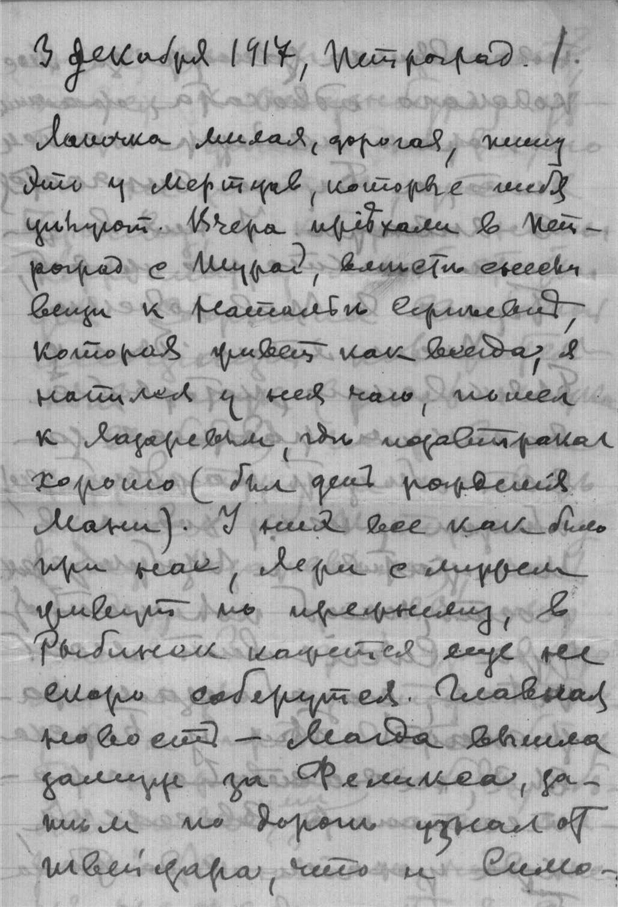 3 декабря 1917, Петроград. 1.
Лапочка милая, дорогая, пишу
это у Мертцъв, которые тебя
цѣлуют. Вчера пріѣхали в Пет-
роград с Шурой, вмѣстѣ снесли
вещи к Натальѣ Сергѣевнѣ,
которая живет как всегда, я
напился у нея чаю, пошел
к Лазаревым, гдѣ позавтракал
хорошо (был день рожденія
Мани). У них все как было
при нас, Мери с мужем
живут по прежнему, в
Рыбинск кажется еще не
скоро соберутся. Главная
новость – Магда вышла
замуж за Феликса, за-
тѣм по дорогѣ узнал от
швейцара, что и Симо-